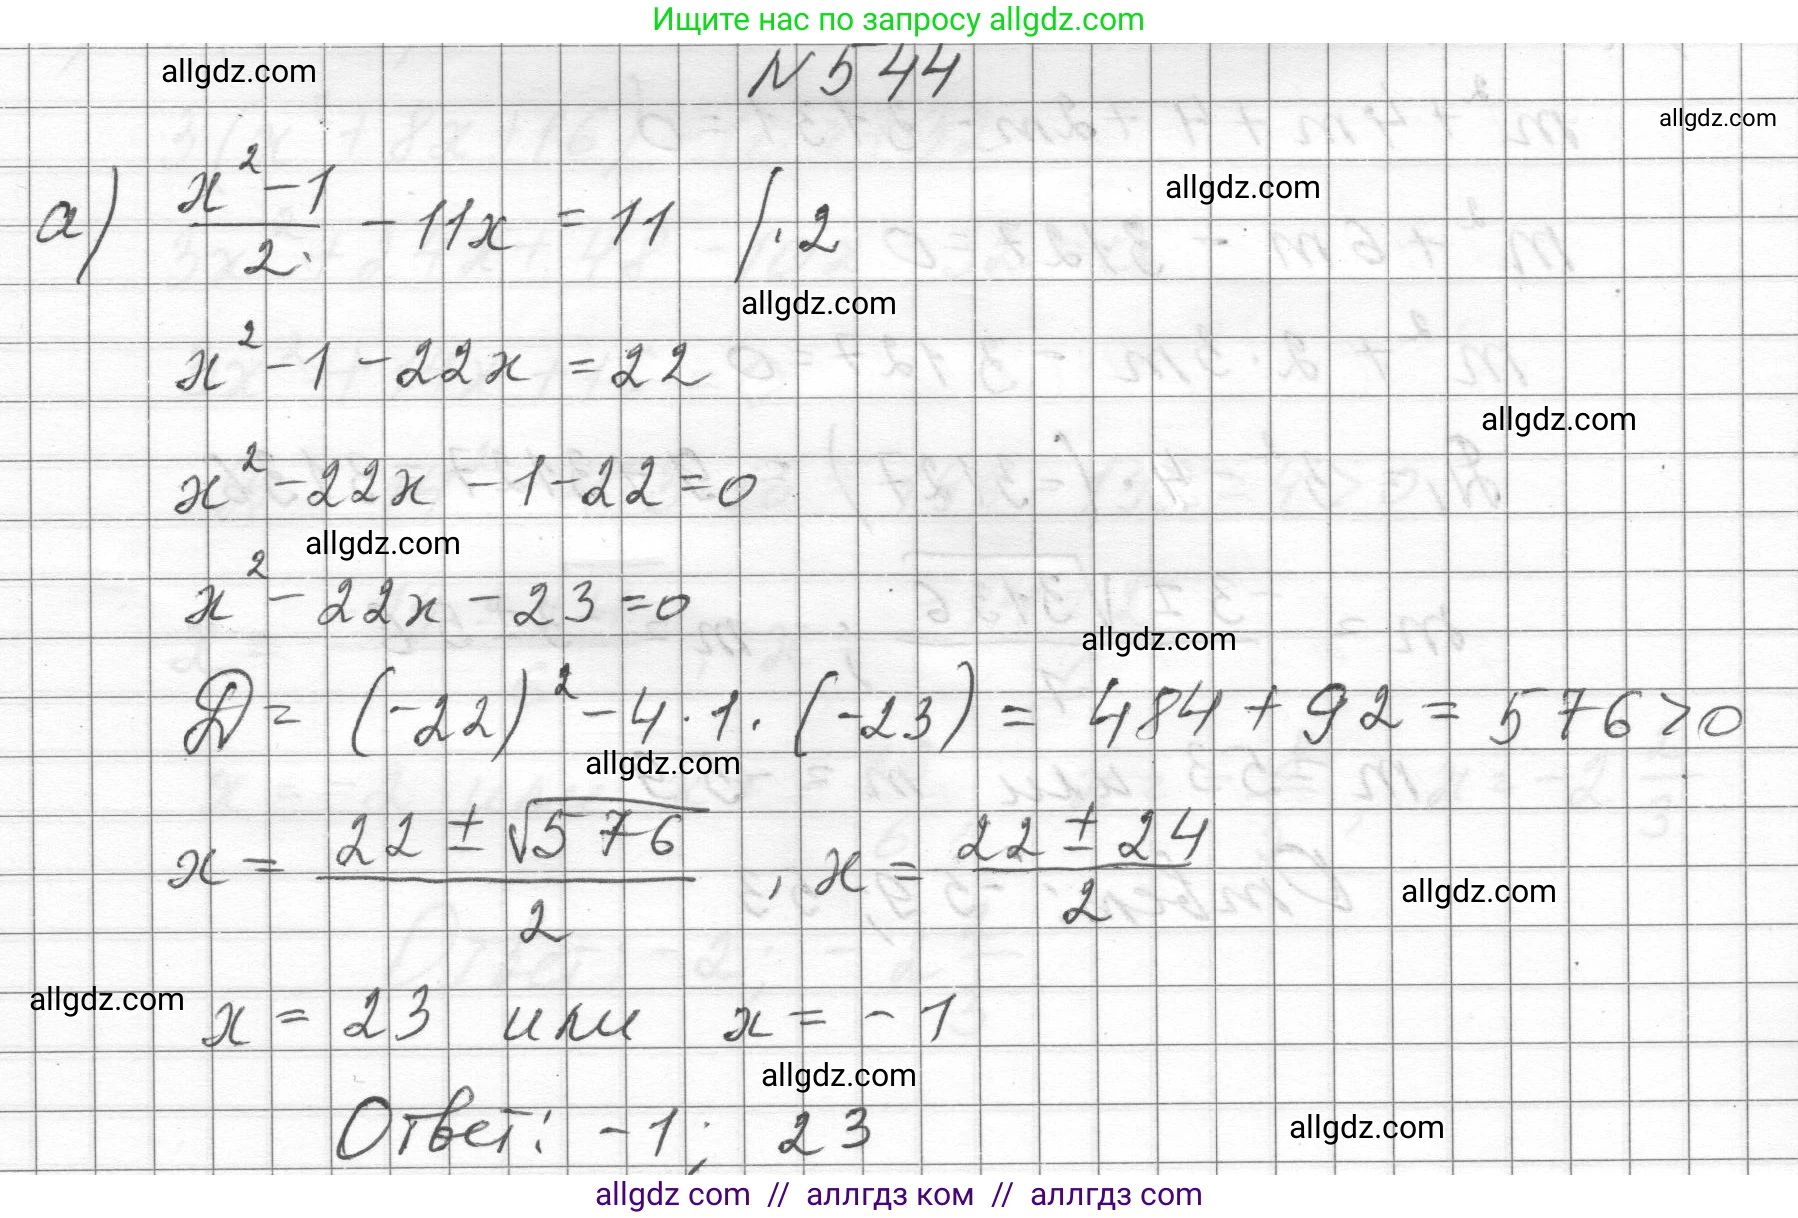 Ищите нас по запросу allgdz.com
allgdz.com
N 544
allgdz.com
а) (x² - 1)/2 - 11x = 11 / · 2
allgdz.com
allgdz.com
x² - 1 - 22x = 22
allgdz.com
x² - 22x - 1 - 22 = 0
allgdz.com
x² - 22x - 23 = 0
allgdz.com
D = (-22)² - 4 · 1 · (-23) = 484 + 92 = 576 > 0
allgdz.com
x = (22 ± √576)/2 , x = (22 ± 24)/2
allgdz.com
allgdz.com
x = 23 или x = -1
allgdz.com
Ответ: -1; 23
allgdz.com
allgdz com // аллгдз ком // аллгдз com